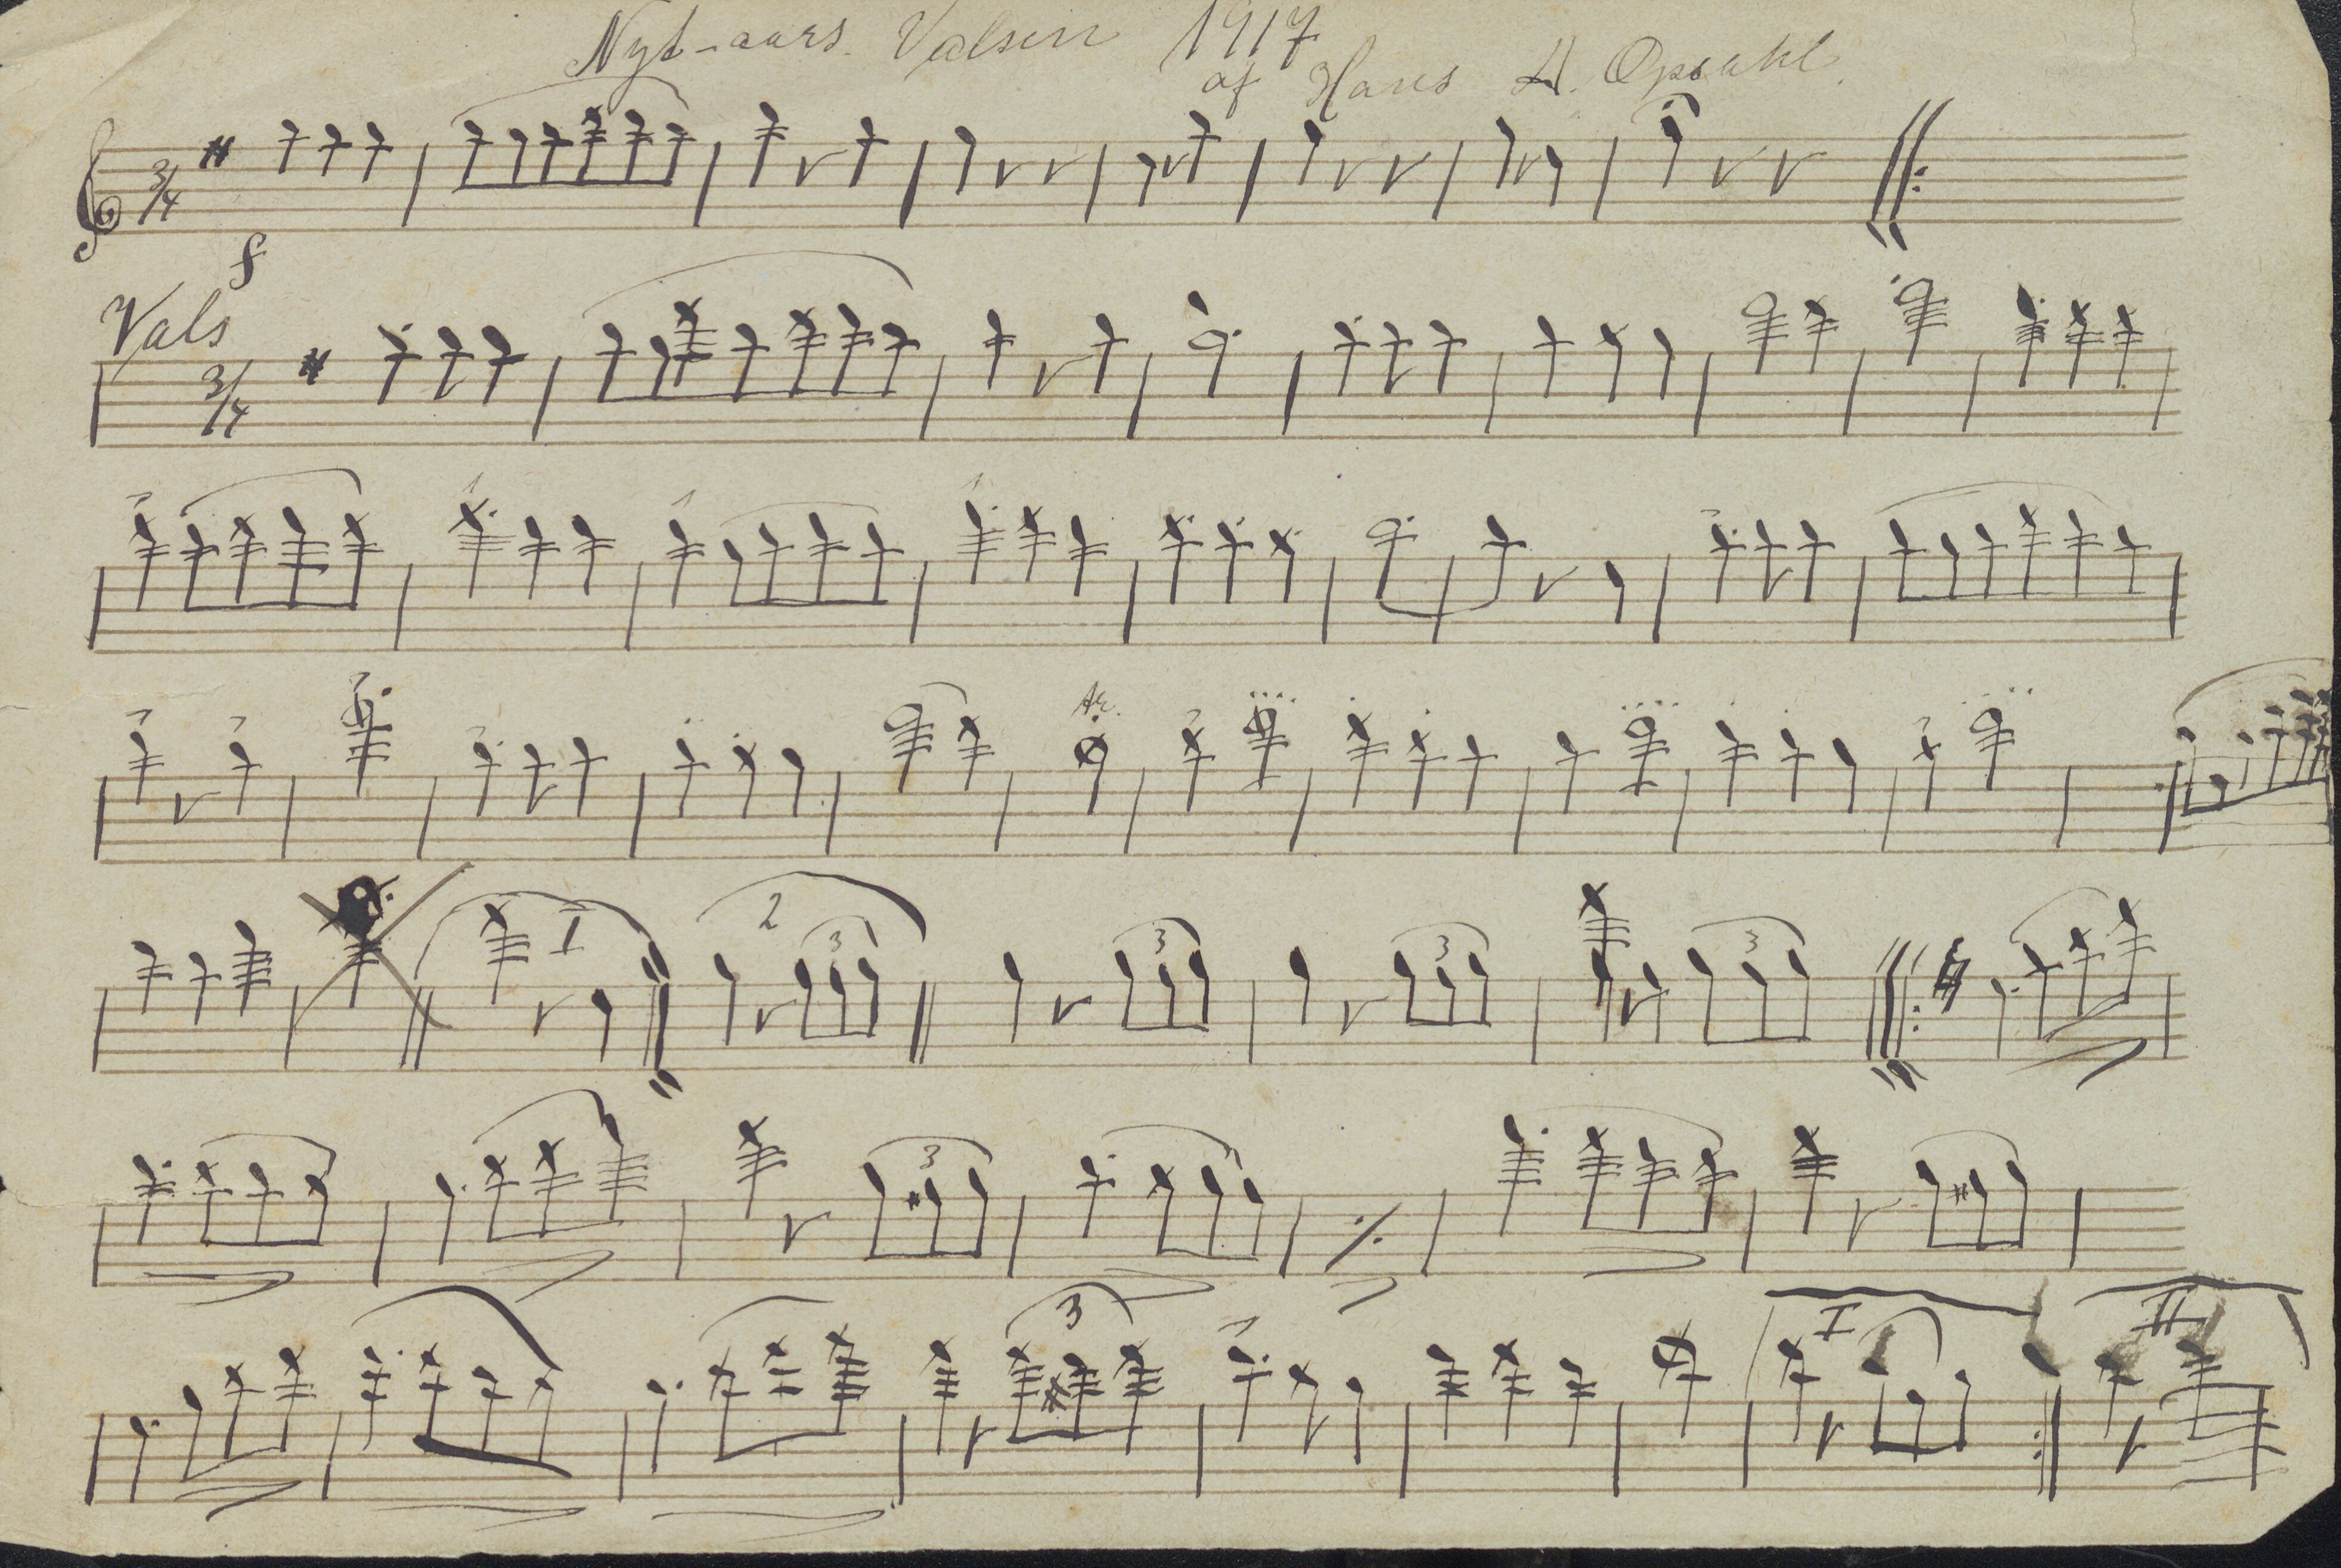 Nyt-aars. Valsen 1917
af Hans H. Opsahl.
3/4
f
Vals
3/4
I 2 3 3 3 3
3
3 I II